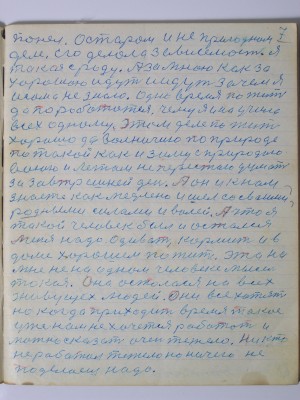 7
понел. Остаром и не природном
дем. Его дело а Зависемость. я
такая среду. А за мною как за
хорошою идут и идут. Зачем я
и сам не знаю. Одне время по жит
да поработать, чему я на учила
всех одному. Этом деле по жит
хорошо да по природе
потакой как и зиму с природою
и летом не перестаю думать
за завтрешней ден. А он и к нам
знаете как медлено и шел со своими,
родными силами и волей. А то я
такой человек была и остался
Меня надо. Одиват, кормит и в
доме хорошем по жит. Эта на
мне не на одном человеке мысел
такая. Она осталася на всех
людей. Они все хотят
но когда приходит время такое
уже нам не хочется работат и
можно сказат очен тежело. Ни кто
не работал тежело но ничего не
поделаеш надо.